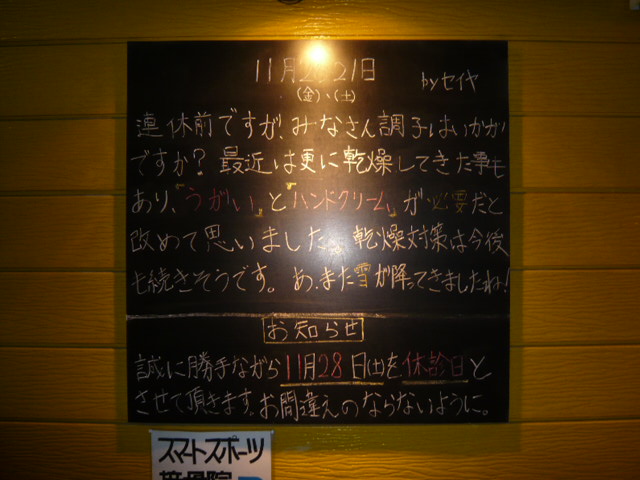 11月20、21日 byセイヤ
(金)、(土)
連休前ですが、みなさん調子はいかが
ですか？最近は更に乾燥してきた事も
あり、『うがい』と『ハンドクリーム』が必要だと
改めて思いました。乾燥対策は今後
も続きそうです。あ、また雪が降ってきましたね!
お知らせ
誠に勝手ながら11月28日(土)を休診日と
させて頂きます。お間違えのならないように。
スマートスポーツ
接骨院